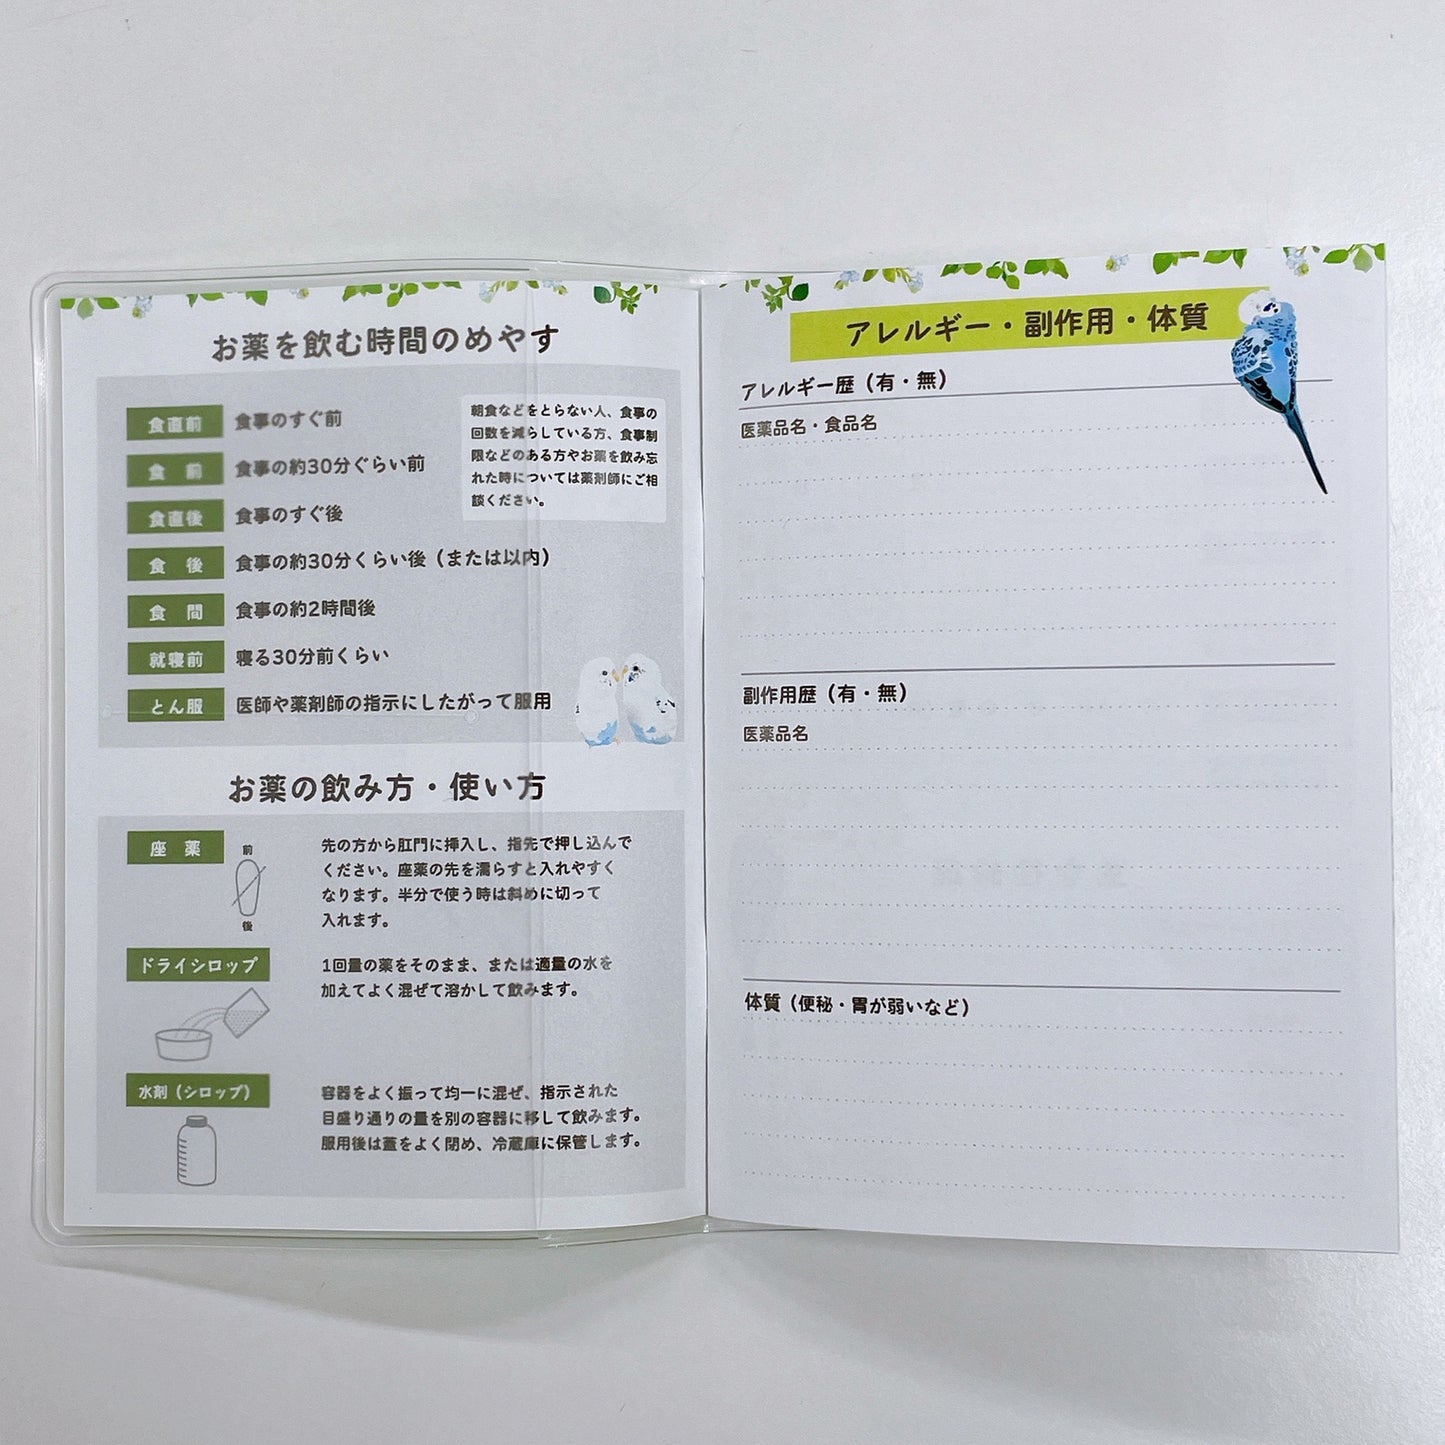 お薬を飲む時間のめやす
食直前 食事のすぐ前
食　前 食事の約30分ぐらい前
食直後 食事のすぐ後
食　後 食事の約30分くらい後（または以内）
食　間 食事の約2時間後
就寝前 寝る30分前くらい
とん服 医師や薬剤師の指示にしたがって服用
朝食などをとらない人、食事の
回数を減らしている方、食事制
限などのある方やお薬を飲み忘
れた時については薬剤師にご相
談ください。
お薬の飲み方・使い方
座　薬
前
後
先の方から肛門に挿入し、指先で押し込んで
ください。座薬の先を濡らすと入れやすく
なります。半分で使う時は斜めに切って
入れます。
ドライシロップ
1回量の薬をそのまま、または適量の水を
加えてよく混ぜて溶かして飲みます。
水剤（シロップ）
容器をよく振って均一に混ぜ、指示された
目盛り通りの量を別の容器に移して飲みます。
服用後は蓋をよく閉め、冷蔵庫に保管します。
アレルギー・副作用・体質
アレルギー歴（有・無）
医薬品名・食品名
副作用歴（有・無）
医薬品名
体質（便秘・胃が弱いなど）